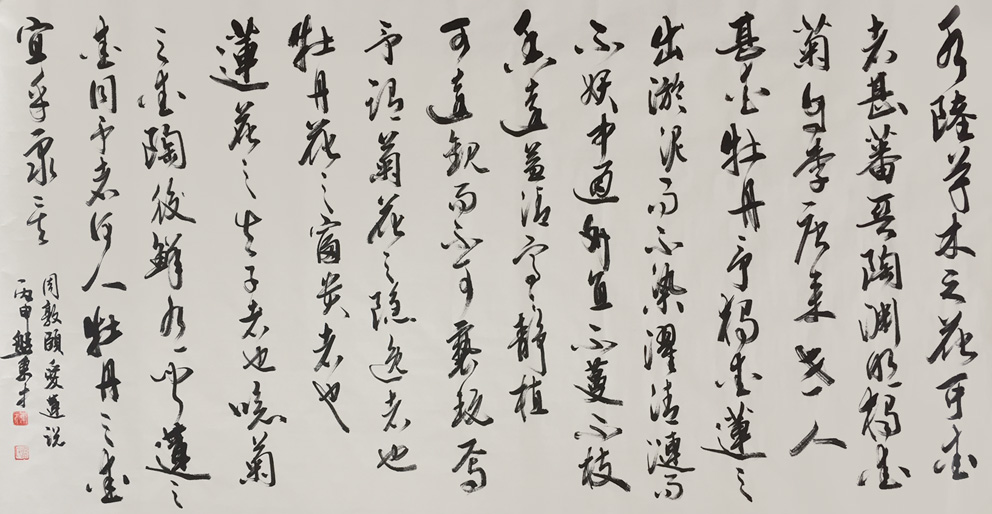 水陸草木之花可愛
者甚蕃晉陶渊明獨愛
菊自李唐來世人
甚愛牡丹予獨愛蓮之
出淤泥而不染濯清漣而
不妖中通外直不蔓不枝
香遠益清亭亭静植
可遠觀而不可褻玩焉
予謂菊花之隐逸者也
牡丹花之富贵者也
蓮花之君子者也噫菊
之愛陶後鮮有聞蓮之
愛同予者何人牡丹之愛
宜乎眾矣
周敦頤愛蓮说
丙申